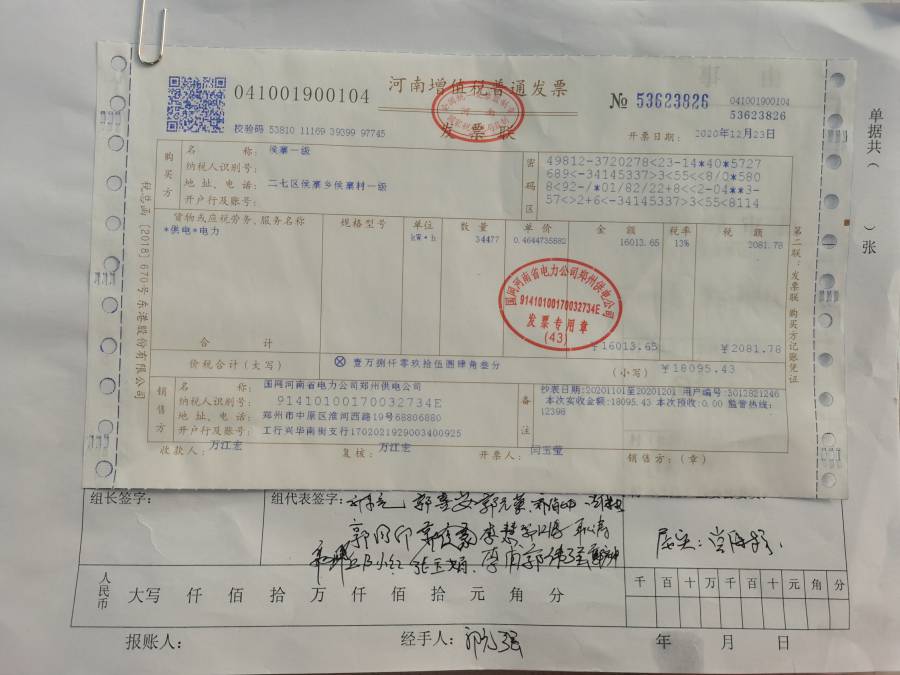 041001900104
河南增值税普通发票
发票联
№ 53623826
041001900104
53623826
校验码 53810 11169 39399 97745
开票日期: 2020年12月23日
单据共( )张
税总函 [2018] 670号 东港股份有限公司
购买方
名 称: 侯寨一级
纳税人识别号:
地址、电话: 二七区侯寨乡侯寨村一级
开户行及账号:
密码区
49812-3720278<23-14*40*5727
689<-34145337>3<55<<8/0*580
8<92-/*01/82/22+8<<2-04**3-
57<>2+6<-34145337>3<55<8114
货物或应税劳务、服务名称 规格型号 单位 数量 单价 金额 税率 税额
*供电*电力 kW•h 34477 0.4644735882 16013.65 13% 2081.78
国网河南省电力公司郑州供电公司
91410100170032734E
发票专用章
(43)
合 计 ¥16013.65 ¥2081.78
价税合计(大写) ⊗ 壹万捌仟零玖拾伍圆肆角叁分 (小写) ¥18095.43
第二联:发票联 购买方记账凭证
销售方
名 称: 国网河南省电力公司郑州供电公司
纳税人识别号: 91410100170032734E
地址、电话: 郑州市中原区淮河西路19号68806880
开户行及账号: 工行兴华南街支行1702021929003400925
备注
抄表日期:20201101至20201201 用户编号:5012821246
本次实收金额:18095.43 本次预收:0.00 监管热线:
12398
收款人: 万江宏 复核: 万江宏 开票人: 闫玉莹 销售方:(章)
组长签字: 组代表签字:
人民币 大写 仟 佰 拾 万 仟 佰 拾 元 角 分
千 百 十 万 千 百 十 元 角 分
报账人: 经手人: 年 月 日